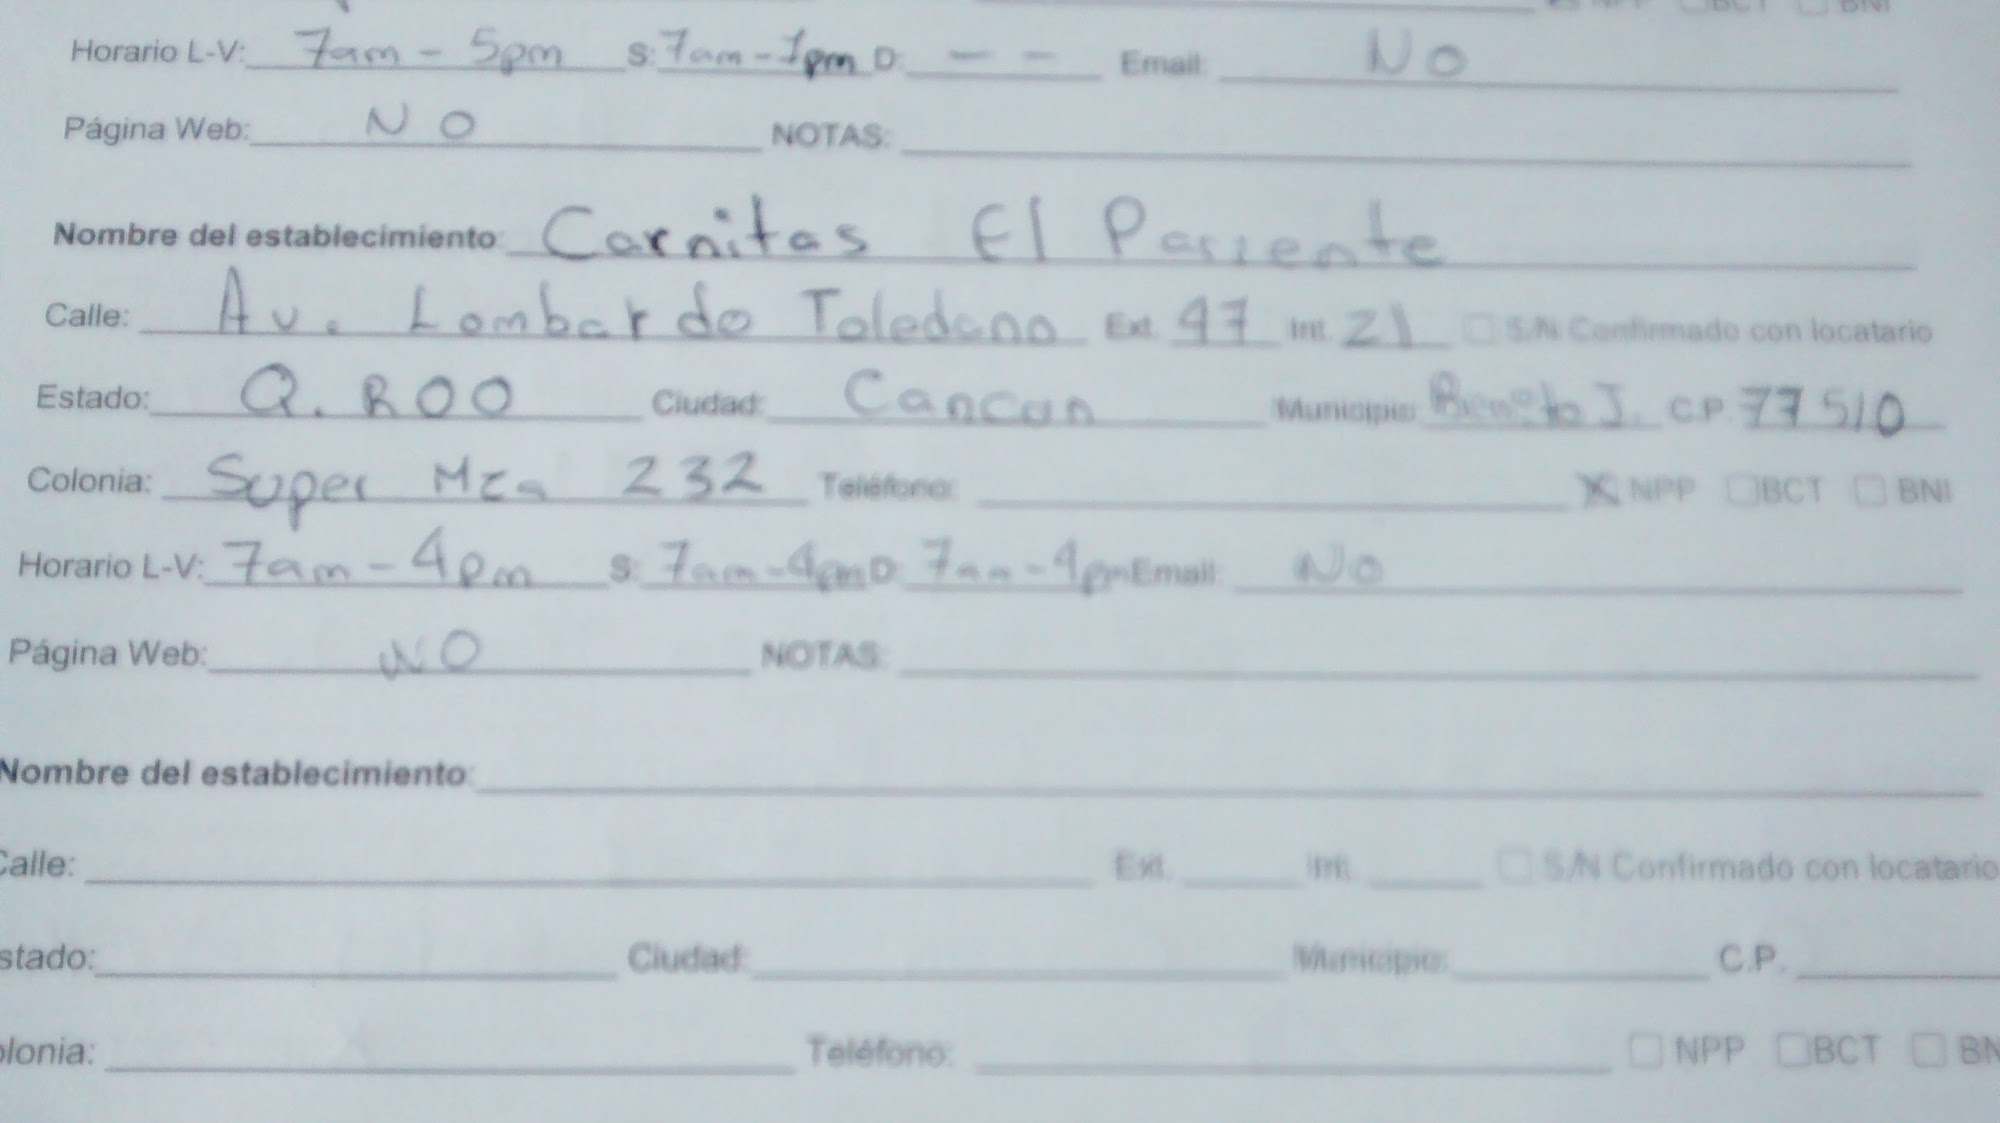 NPP ☐ BCT ☐ BNI
Horario L-V: 7am - 5pm S: 7am - 1pm D: — — Email: No
Página Web: NO NOTAS:
Nombre del establecimiento: Carnitas El Pariente
Calle: Av. Lombardo Toledano Ext. 97 Int. 21 ☐ S/N Confirmado con locatario
Estado: Q. ROO Ciudad: Cancun Municipio: Benito J. C.P. 77510
Colonia: Super Mza 232 Teléfono: ☒ NPP ☐ BCT ☐ BNI
Horario L-V: 7am - 4pm S: 7am - 4pm D: 7am - 4pm Email: No
Página Web: NO NOTAS:
Nombre del establecimiento:
Calle: Ext. Int. ☐ S/N Confirmado con locatario
stado: Ciudad: Municipio: C.P.
olonia: Teléfono: ☐ NPP ☐ BCT ☐ BN